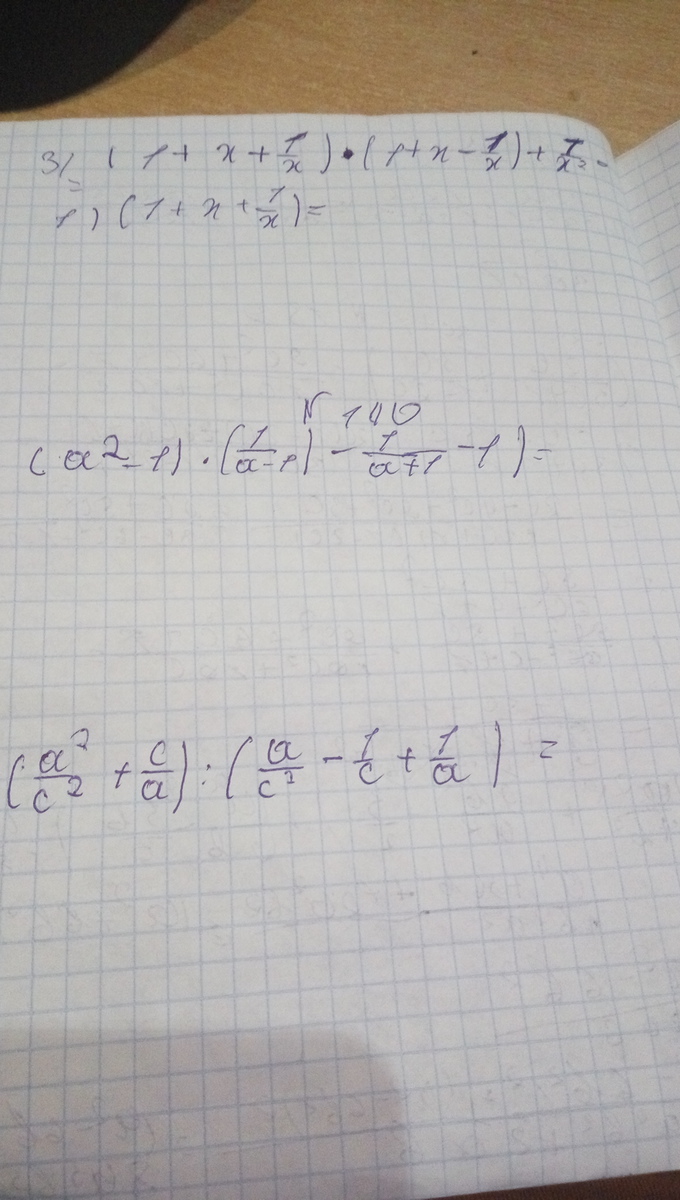 3) (1 + x + 1/x) • (1 + x - 1/x) + 1/x² -
=
1) (1 + x + 1/x) =
N 140
(a² - 1) · (1/(a-1)) - 1/(a+1) - 1) =
(a²/c² + c/a) : (a/c² - 1/c + 1/a) =